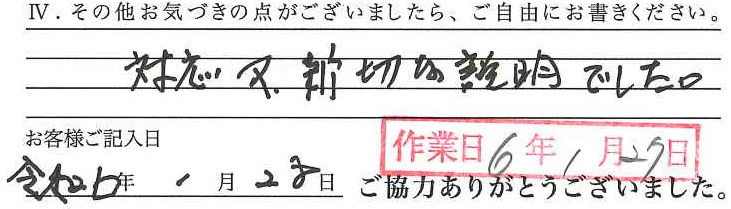 Ⅳ．その他お気づきの点がございましたら、ご自由にお書きください。
対応又、新切な説明でした。
お客様ご記入日
令和6年1月28日
作業日6年1月27日
ご協力ありがとうございました。